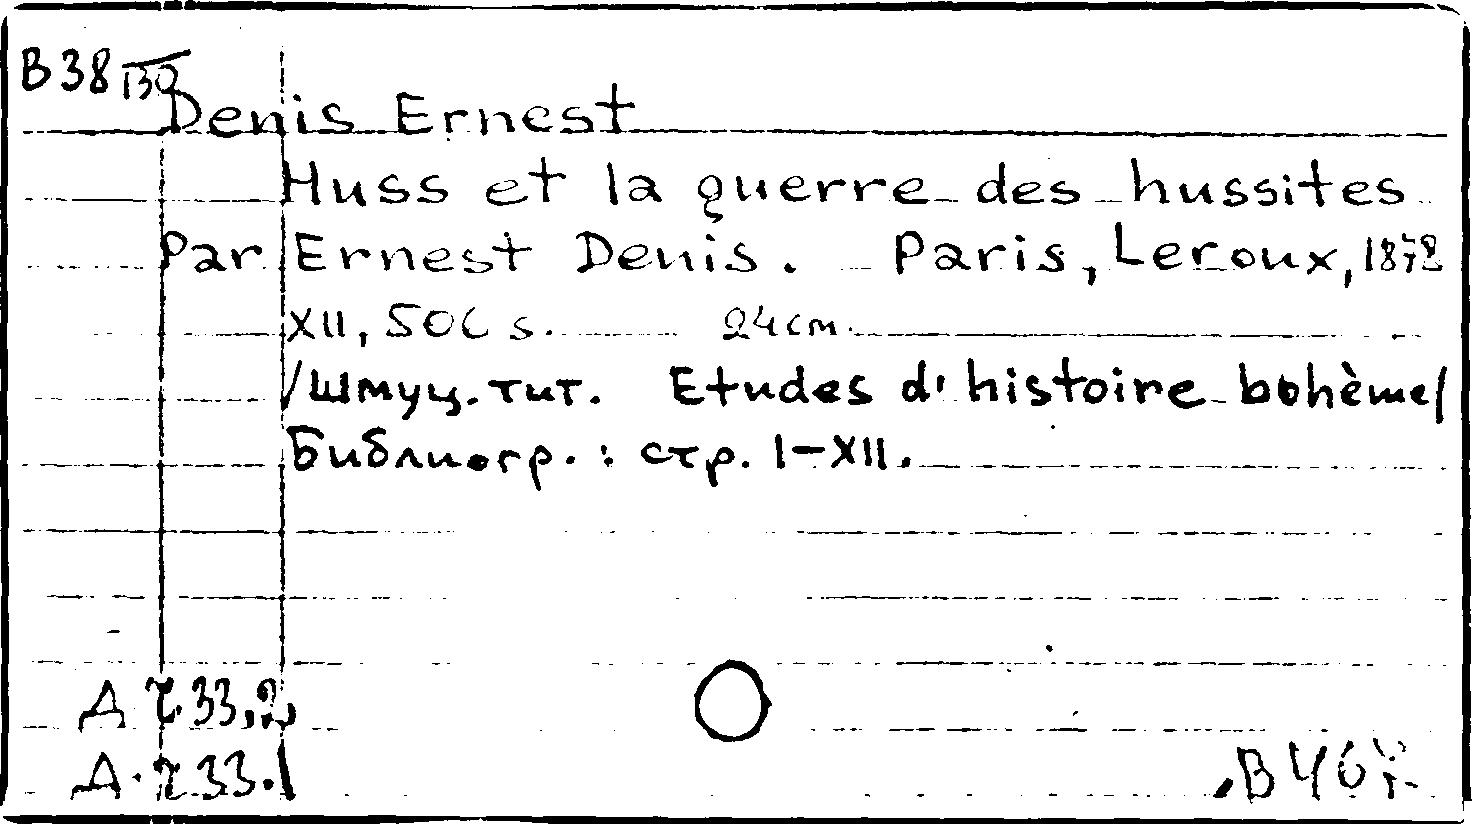 B38/130
Denis Ernest
Huss et la guerre des hussites
Par Ernest Denis. Paris, Leroux, 1878
XII, 506 s. 24 cm.
/Шмуц. тит. Etudes d'histoire bohème/
Библиогр. : стр. I-XII.
Д 733.2
Д. 733.1